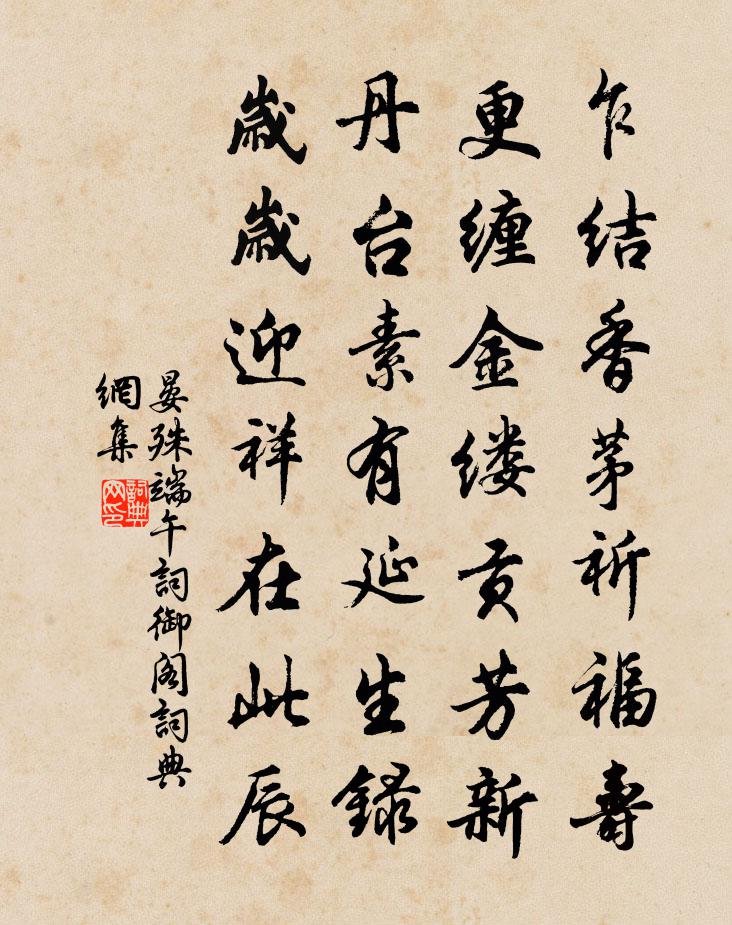 乍结香茅祈福寿
更缠金缕贡芳新
丹台素有延生录
岁岁迎祥在此辰
晏殊端午詞御阁詞典
網集
詞典
网印